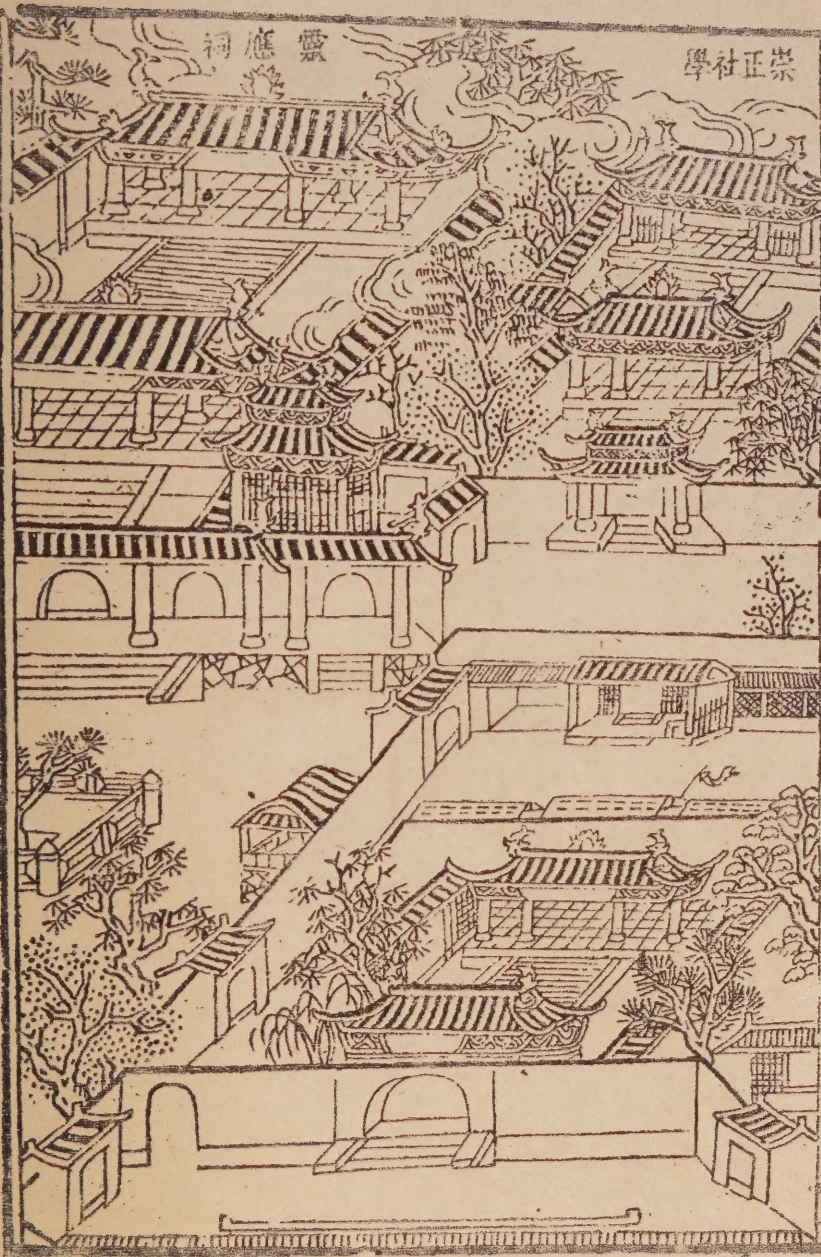 崇正社學
靈應祠